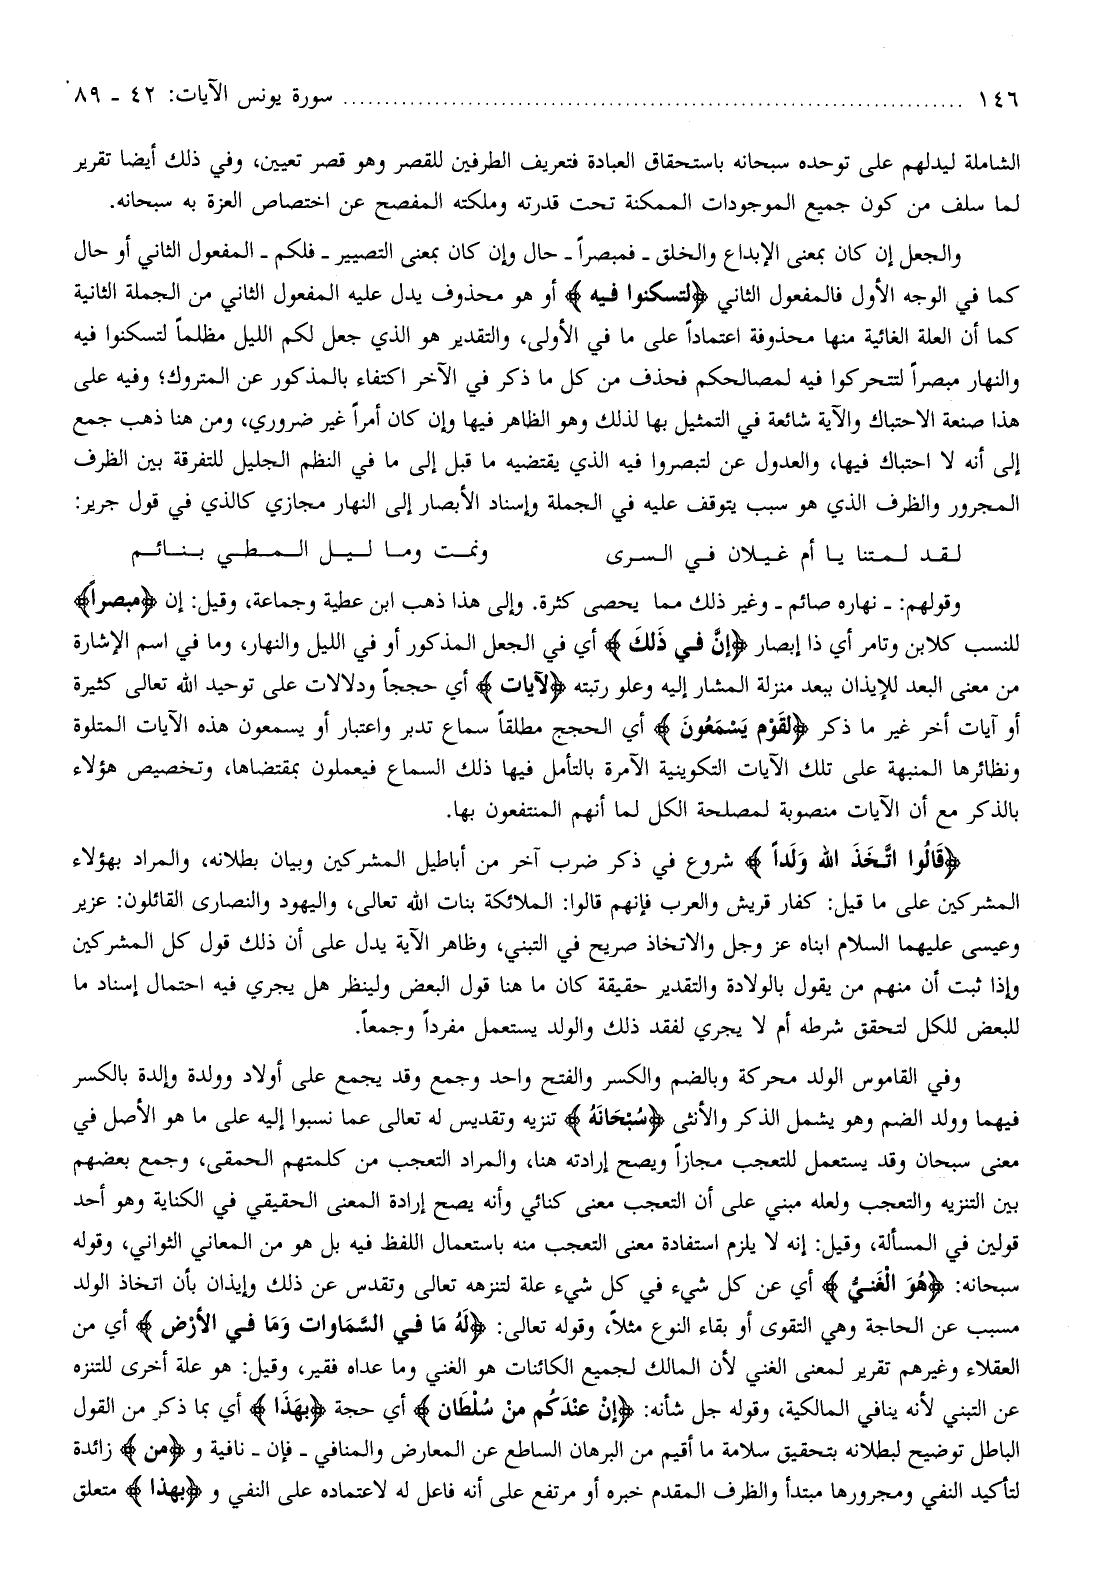 ١٤٦ ........................................................................... سورة يونس الآيات: ٤٢ ـ ٨٩
الشاملة ليدلهم على توحده سبحانه باستحقاق العبادة فتعريف الطرفين للقصر وهو قصر تعيين، وفي ذلك أيضا تقرير
لما سلف من كون جميع الموجودات الممكنة تحت قدرته وملكته المفصح عن اختصاص العزة به سبحانه.
والجعل إن كان بمعنى الإبداع والخلق ـ فمبصراً ـ حال وإن كان بمعنى التصيير ـ فلكم ـ المفعول الثاني أو حال
كما في الوجه الأول فالمفعول الثاني ﴿لتسكنوا فيه﴾ أو هو محذوف يدل عليه المفعول الثاني من الجملة الثانية
كما أن العلة الغائية منها محذوفة اعتماداً على ما في الأولى، والتقدير هو الذي جعل لكم الليل مظلماً لتسكنوا فيه
والنهار مبصراً لتتحركوا فيه لمصالحكم فحذف من كل ما ذكر في الآخر اكتفاء بالمذكور عن المتروك؛ وفيه على
هذا صنعة الاحتباك والآية شائعة في التمثيل بها لذلك وهو الظاهر فيها وإن كان أمراً غير ضروري، ومن هنا ذهب جمع
إلى أنه لا احتباك فيها، والعدول عن لتبصروا فيه الذي يقتضيه ما قبل إلى ما في النظم الجليل للتفرقة بين الظرف
المجرور والظرف الذي هو سبب يتوقف عليه في الجملة وإسناد الأبصار إلى النهار مجازي كالذي في قول جرير:
لقد لمتنا يا أم غيلان في السرى ونمت وما ليل المطي بنائم
وقولهم: ـ نهاره صائم ـ وغير ذلك مما يحصى كثرة. وإلى هذا ذهب ابن عطية وجماعة، وقيل: إن ﴿مبصراً﴾
للنسب كلابن وتامر أي ذا إبصار ﴿إنَّ في ذَلكَ﴾ أي في الجعل المذكور أو في الليل والنهار، وما في اسم الإشارة
من معنى البعد للإيذان ببعد منزلة المشار إليه وعلو رتبته ﴿لآيات﴾ أي حججاً ودلالات على توحيد الله تعالى كثيرة
أو آيات أخر غير ما ذكر ﴿لقَوْم يَسْمَعُونَ﴾ أي الحجج مطلقاً سماع تدبر واعتبار أو يسمعون هذه الآيات المتلوة
ونظائرها المنبهة على تلك الآيات التكوينية الآمرة بالتأمل فيها ذلك السماع فيعملون بمقتضاها، وتخصيص هؤلاء
بالذكر مع أن الآيات منصوبة لمصلحة الكل لما أنهم المنتفعون بها.
﴿قَالُوا اتَّخَذَ الله وَلَداً﴾ شروع في ذكر ضرب آخر من أباطيل المشركين وبيان بطلانه، والمراد بهؤلاء
المشركين على ما قيل: كفار قريش والعرب فإنهم قالوا: الملائكة بنات الله تعالى، واليهود والنصارى القائلون: عزير
وعيسى عليهما السلام ابناه عز وجل والاتخاذ صريح في التبني، وظاهر الآية يدل على أن ذلك قول كل المشركين
وإذا ثبت أن منهم من يقول بالولادة والتقدير حقيقة كان ما هنا قول البعض ولينظر هل يجري فيه احتمال إسناد ما
للبعض للكل لتحقق شرطه أم لا يجري لفقد ذلك والولد يستعمل مفرداً وجمعاً.
وفي القاموس الولد محركة وبالضم والكسر والفتح واحد وجمع وقد يجمع على أولاد وولدة وإلدة بالكسر
فيهما وولد الضم وهو يشمل الذكر والأنثى ﴿سُبْحَانَهُ﴾ تنزيه وتقديس له تعالى عما نسبوا إليه على ما هو الأصل في
معنى سبحان وقد يستعمل للتعجب مجازاً ويصح إرادته هنا، والمراد التعجب من كلمتهم الحمقى، وجمع بعضهم
بين التنزيه والتعجب ولعله مبني على أن التعجب معنى كنائي وأنه يصح إرادة المعنى الحقيقي في الكناية وهو أحد
قولين في المسألة، وقيل: إنه لا يلزم استفادة معنى التعجب منه باستعمال اللفظ فيه بل هو من المعاني الثواني، وقوله
سبحانه: ﴿هُوَ الْغَنيُّ﴾ أي عن كل شيء في كل شيء علة لتنزهه تعالى وتقدس عن ذلك وإيذان بأن اتخاذ الولد
مسبب عن الحاجة وهي التقوى أو بقاء النوع مثلاً، وقوله تعالى: ﴿لَهُ مَا في السَّمَاوات وَمَا في الأرْض﴾ أي من
العقلاء وغيرهم تقرير لمعنى الغني لأن المالك لجميع الكائنات هو الغني وما عداه فقير، وقيل: هو علة أخرى للتنزه
عن التبني لأنه ينافي المالكية، وقوله جل شأنه: ﴿إنْ عنْدَكُم منْ سُلْطَان﴾ أي حجة ﴿بهَذَا﴾ أي بما ذكر من القول
الباطل توضيح لبطلانه بتحقيق سلامة ما أقيم من البرهان الساطع عن المعارض والمنافي ـ فإن ـ نافية و ﴿من﴾ زائدة
لتأكيد النفي ومجرورها مبتدأ والظرف المقدم خبره أو مرتفع على أنه فاعل له لاعتماده على النفي و ﴿بهذا﴾ متعلق